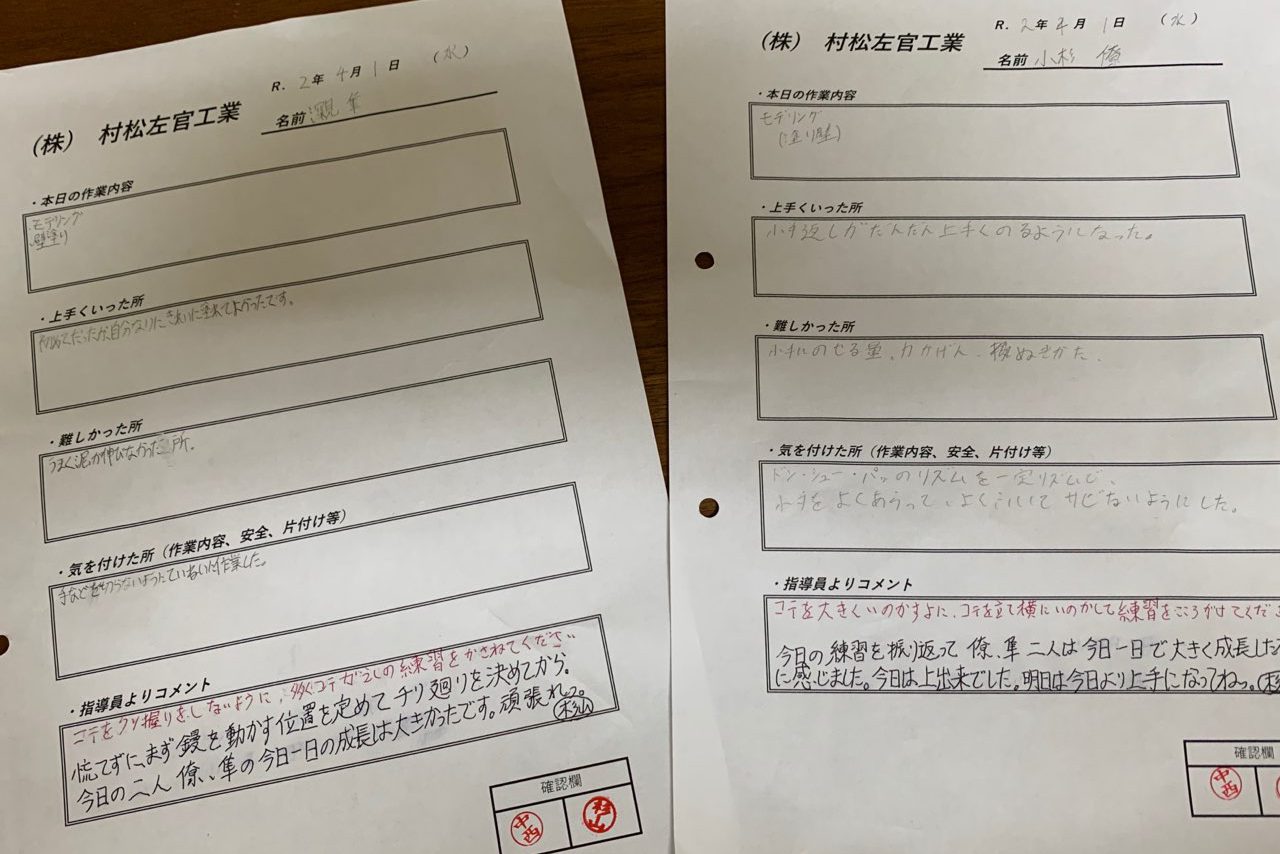 R. 2年 4月 1日 (水)
(株) 村松左官工業
名前 深親 隼
・本日の作業内容
・モデリング
・壁塗り
・上手くいった所
初めてだったが自分なりにきれいに塗れてよかったです。
・難しかった所
うまく泥が伸びなかった所。
・気を付けた所（作業内容、安全、片付け等）
手などを切らないようにていねいに作業した。
・指導員よりコメント
コテをクソ握りをしないように、多くコテがえしの練習をかさねてください
慌てずに、まず鏝を動かす位置を定めてチリ廻りを決めてから。
今日の二人 僚、隼の今日一日の成長は大きかったです。頑張れっ。 杉山
確認欄
中西
R. 2年 4月 1日 (水)
(株) 村松左官工業
名前 小杉 僚
・本日の作業内容
モデリング
(塗り壁)
・上手くいった所
小手返しがだんだん上手くのるようになった。
・難しかった所
小手にのせる量、力かげん、
ぬきかた、
・気を付けた所（作業内容、安全、片付け等）
ドン・シュー・パッのリズムを一定リズムで、
小手をよくあらって、よくふいてサビないようにした。
・指導員よりコメント
コテを大きくいのかすよに、コテを立て横にいのかして練習をこころがけてくださ
今日の練習を振り返って 僚、隼 二人は今日一日で大きく成長した
に感じました。今日は上出来でした。明日は今日より上手になってねっ。
確認欄
中西